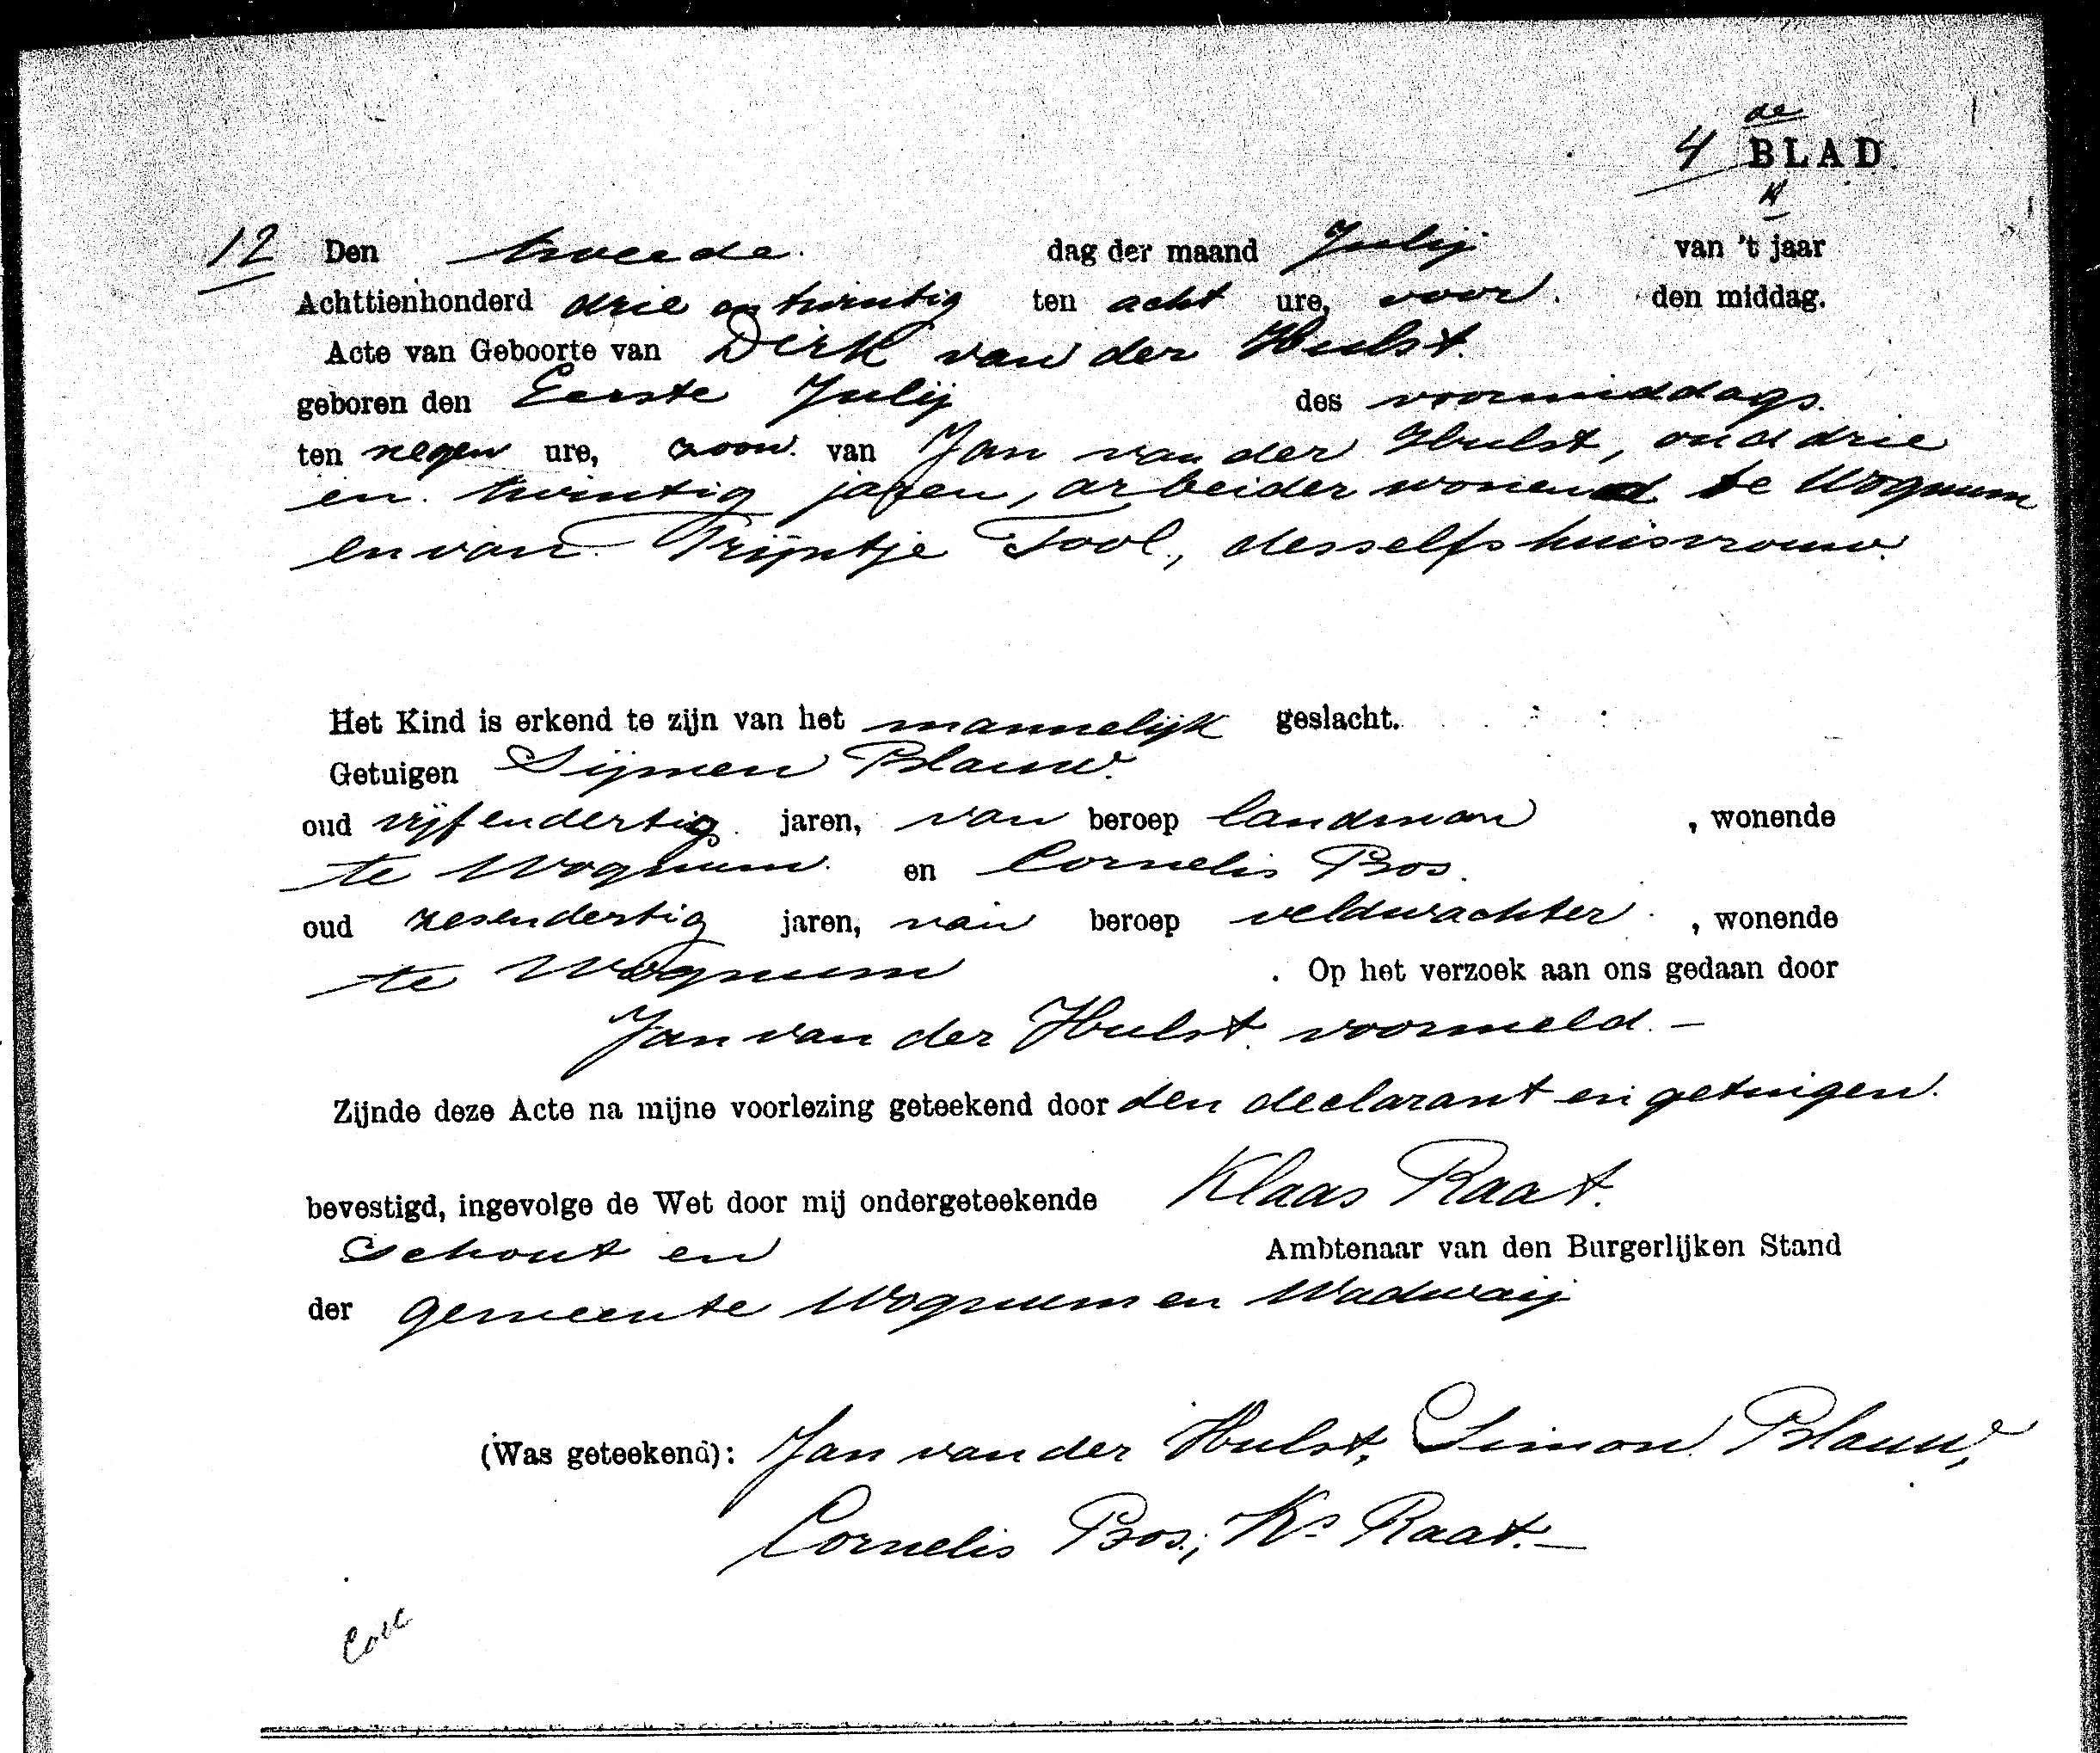 de
4 BLAD.
12 Den tweede. dag der maand Julij van 't jaar
Achttienhonderd drie en twintig ten acht ure, voor. den middag.
Acte van Geboorte van Dirk van der Hulst.
geboren den Eerste Julij des voormiddags.
ten negen ure, zoon. van Jan van der Hulst, oud drie
en twintig jaren, arbeider wonend te Wognum
en van Trijntje Tool, desselfs huisvrouw.
Het Kind is erkend te zijn van het mannelijk geslacht.
Getuigen Sijmen Blauw.
oud vijfendertig. jaren, van beroep landman , wonende
te Wognum. en Cornelis Bos.
oud zesendertig jaren, van beroep veldwachter. , wonende
te Wognum . Op het verzoek aan ons gedaan door
Jan van der Hulst voormeld.—
Zijnde deze Acte na mijne voorlezing geteekend door den declarant en getuigen.
bevestigd, ingevolge de Wet door mij ondergeteekende Klaas Raat.
Schout en Ambtenaar van den Burgerlijken Stand
der gemeente Wognum en Wadwaij
(Was geteekend): Jan van der Hulst, Simon Blauw,
Cornelis Bos; Ks Raat.—